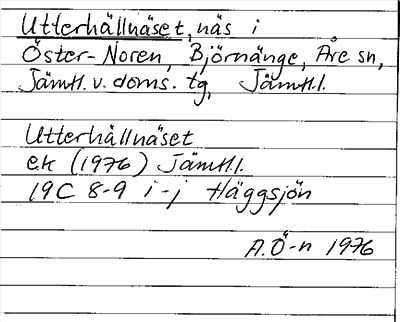 Utterhällnäset, näs i
Öster-Noren, Björnänge, Åre sn,
Jämtl. v. doms. tg, Jämtl.l.
Utterhällnäset
ek (1976) Jämtl.l.
19C 8-9 i-j Häggsjön
A.Ö-n 1976